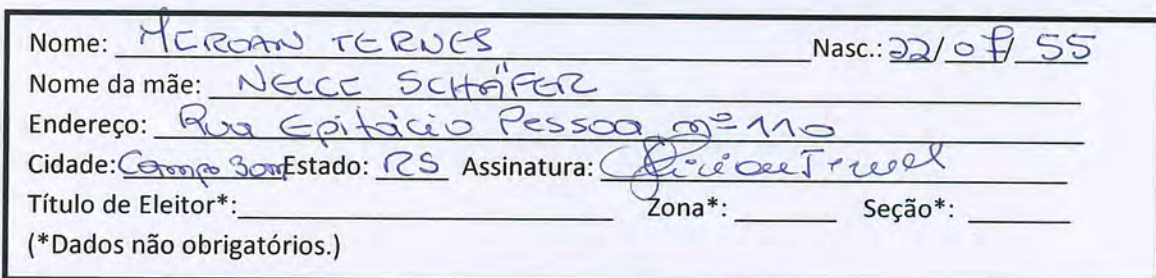 Nome: MEROAN TERNES Nasc.: 22/07/55
Nome da mãe: NELCE SCHÄFER
Endereço: Rua Epitácio Pessoa nº 110
Cidade: Campo Bom Estado: RS Assinatura:
Título de Eleitor*: Zona*: Seção*:
(*Dados não obrigatórios.)